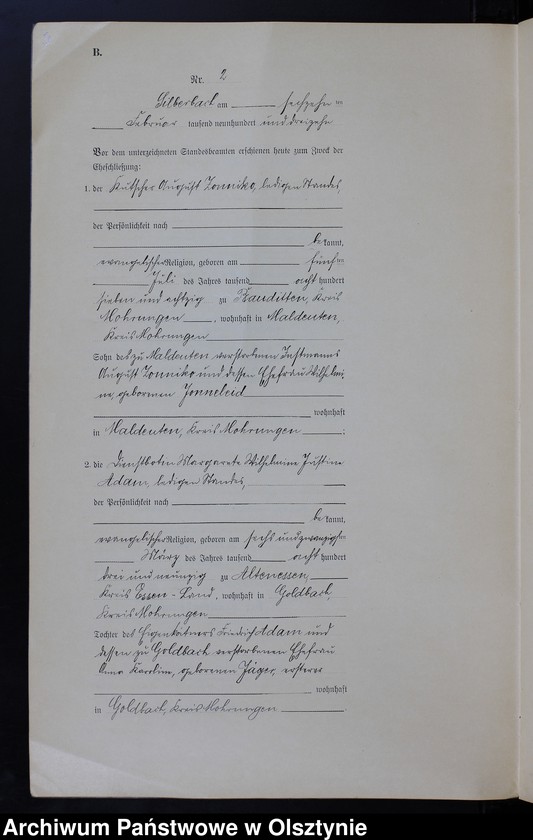 B.
Nr. 2
Silberbach am sechzehnten
Februar tausend neunhundert und dreizehn
Vor dem unterzeichneten Standesbeamten erschienen heute zum Zweck der
Eheschließung:
1. der Kutscher August Zonniko, ledigen Standes,
der Persönlichkeit nach
bekannt,
evangelischer Religion, geboren am fünften
Juli des Jahres tausend acht hundert
sieben und achtzig zu Bauditten, Kreis
Mohrungen, wohnhaft in Maldeuten,
Kreis Mohrungen
Sohn des zu Maldeuten verstorbenen Instmanns
August Zonniko und dessen Ehefrau Wilhelmi-
ne, geborenen
wohnhaft
in Maldeuten, Kreis Mohrungen;
2. die Dienstbotin Margarete Wilhelmine Justine
Adam, ledigen Standes,
der Persönlichkeit nach
bekannt,
evangelischer Religion, geboren am sechs und zwanzigsten
März des Jahres tausend acht hundert
drei und neunzig zu Altenessen,
Kreis Essen-Land, wohnhaft in Goldbach,
Kreis Mohrungen
Tochter des Eigenkätners Friedrich Adam und
dessen zu Goldbach verstorbenen Ehefrau
Anna Karoline, geborenen Jäger, ersterer
wohnhaft
in Goldbach, Kreis Mohrungen.
Archiwum Państwowe w Olsztynie